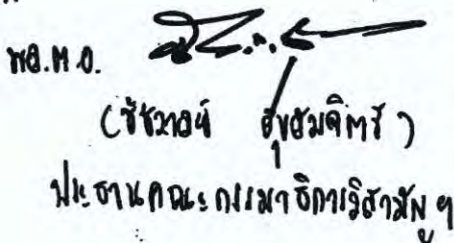 พล.ต.อ.
(ชัชวาลย์ สุขสมจิตร์)
ประธานคณะกรรมาธิการวิสามัญฯ